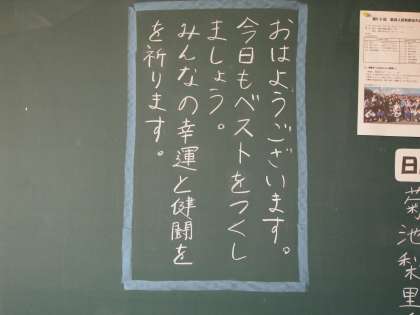 おはようございます。
今日もベストをつくし
ましょう。
みんなの幸運と健闘を
を祈ります。
日
菊池梨里